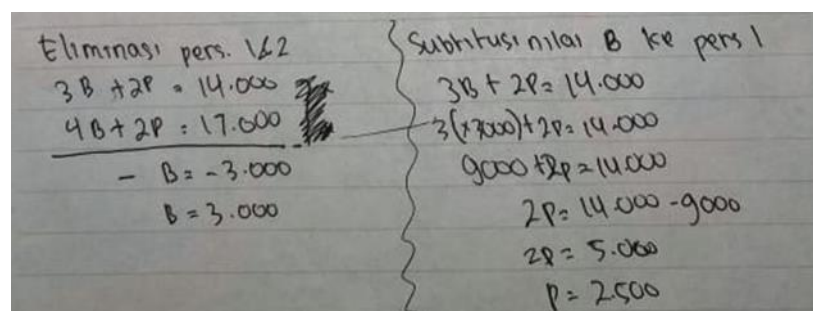 Eliminasi pers. 1&2
3B + 2P = 14.000
4B + 2P = 17.000 -
- B = -3.000
B = 3.000
Subtitusi nilai B ke pers 1
3B + 2P = 14.000
3(×3000) + 2P = 14.000
9000 + 2P = 14.000
2P = 14.000 - 9000
2P = 5.000
P = 2.500